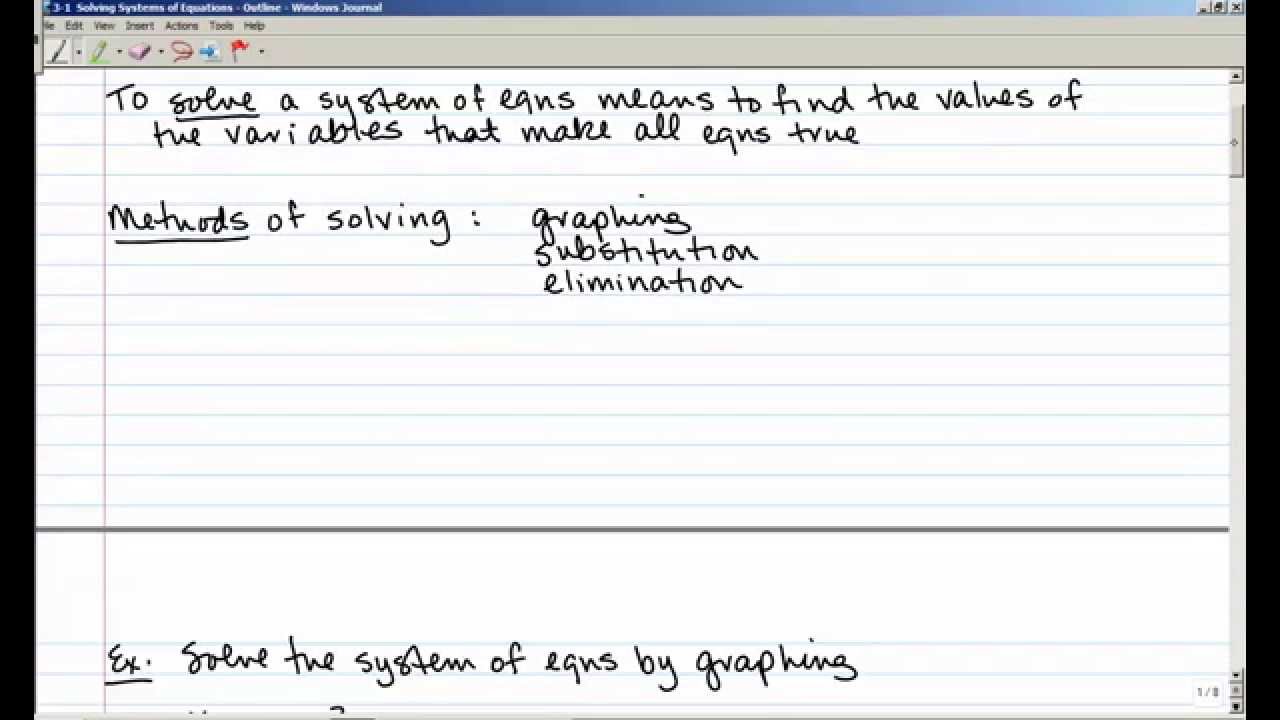 3-1 Solving Systems of Equations - Outline - Windows Journal
File Edit View Insert Actions Tools Help
To solve a system of eqns means to find the values of
the variables that make all eqns true
Methods of solving : graphing
substitution
elimination
Ex. Solve the system of eqns by graphing
1 / 8